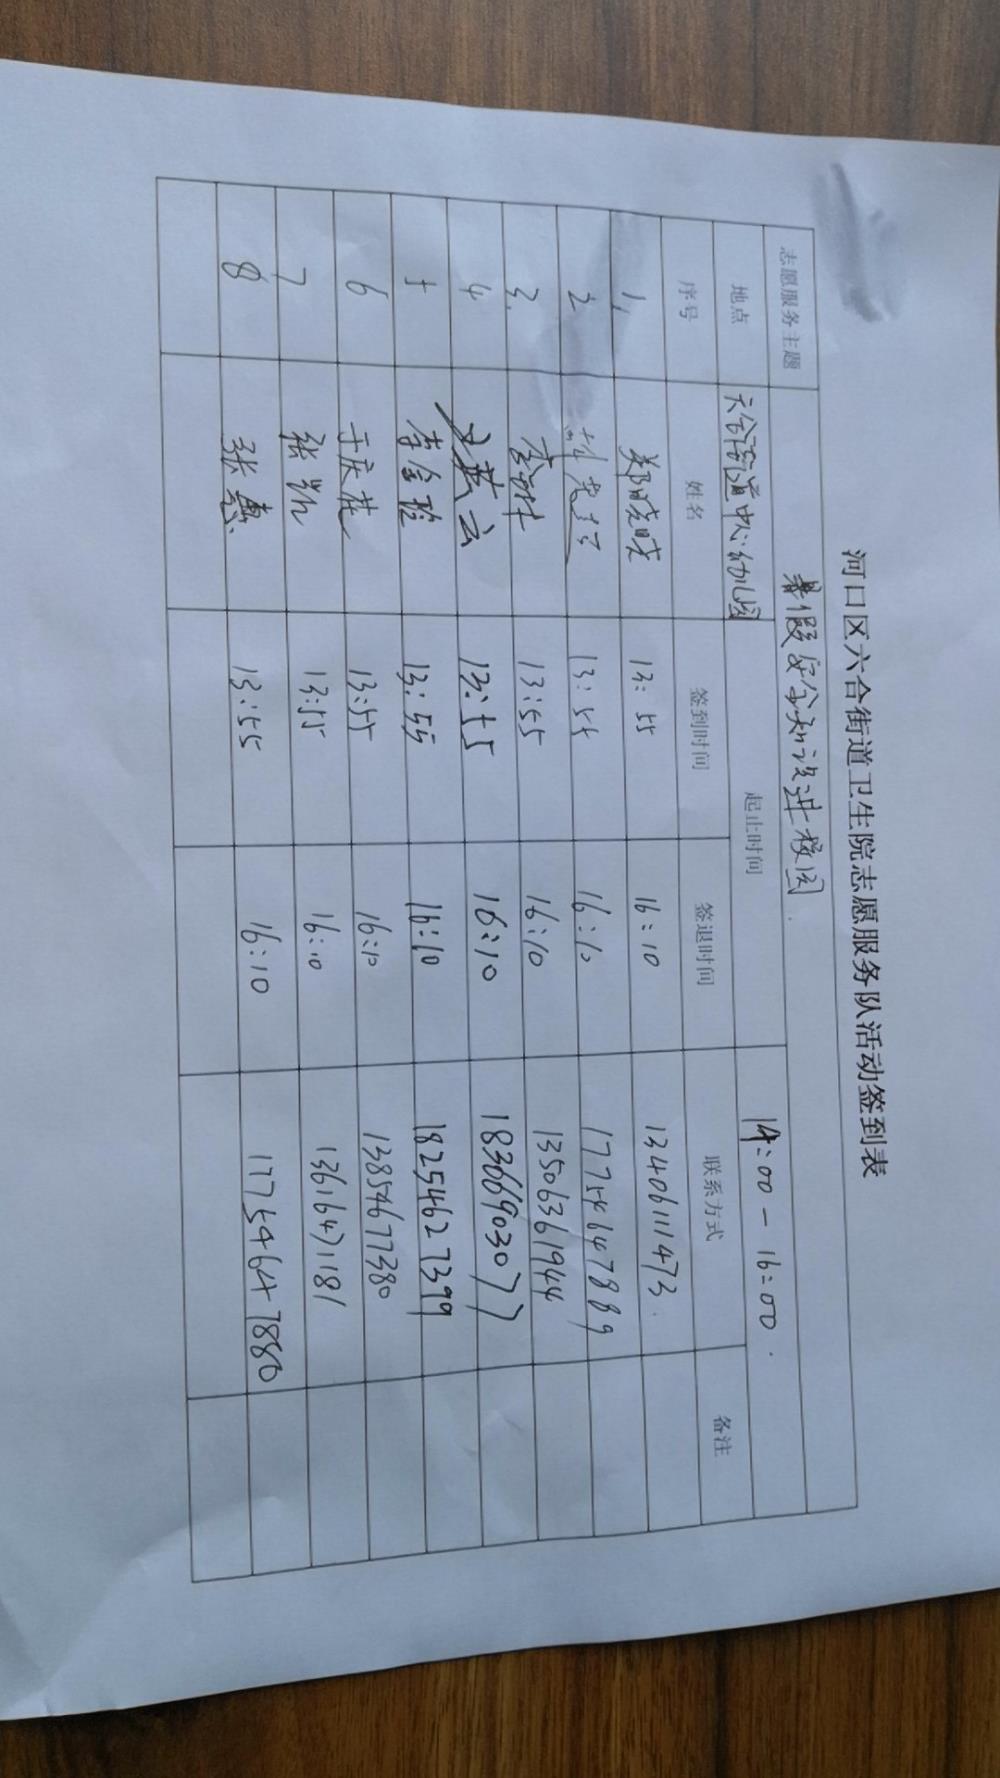 河口区六合街道卫生院志愿服务队活动签到表
志愿服务主题 暑假安全知识进校园
地点 六合街道中心幼儿园 起止时间 14:00-16:00.
序号 姓名 签到时间 签退时间 联系方式 备注
1, 郑晓晓 13:55 16:10 13406111473.
2 13:55 16:10 17754647889
3. 13:55 16:10 13506361944
4 燕云 13:55 16:10 18366903077
5 李金玲 13:55 16:10 18254627399
6 于庆花 13:55 16:10 13854677380
7 张凯 13:55 16:10 13616471181
8 张惠. 13:55 16:10 17754647880